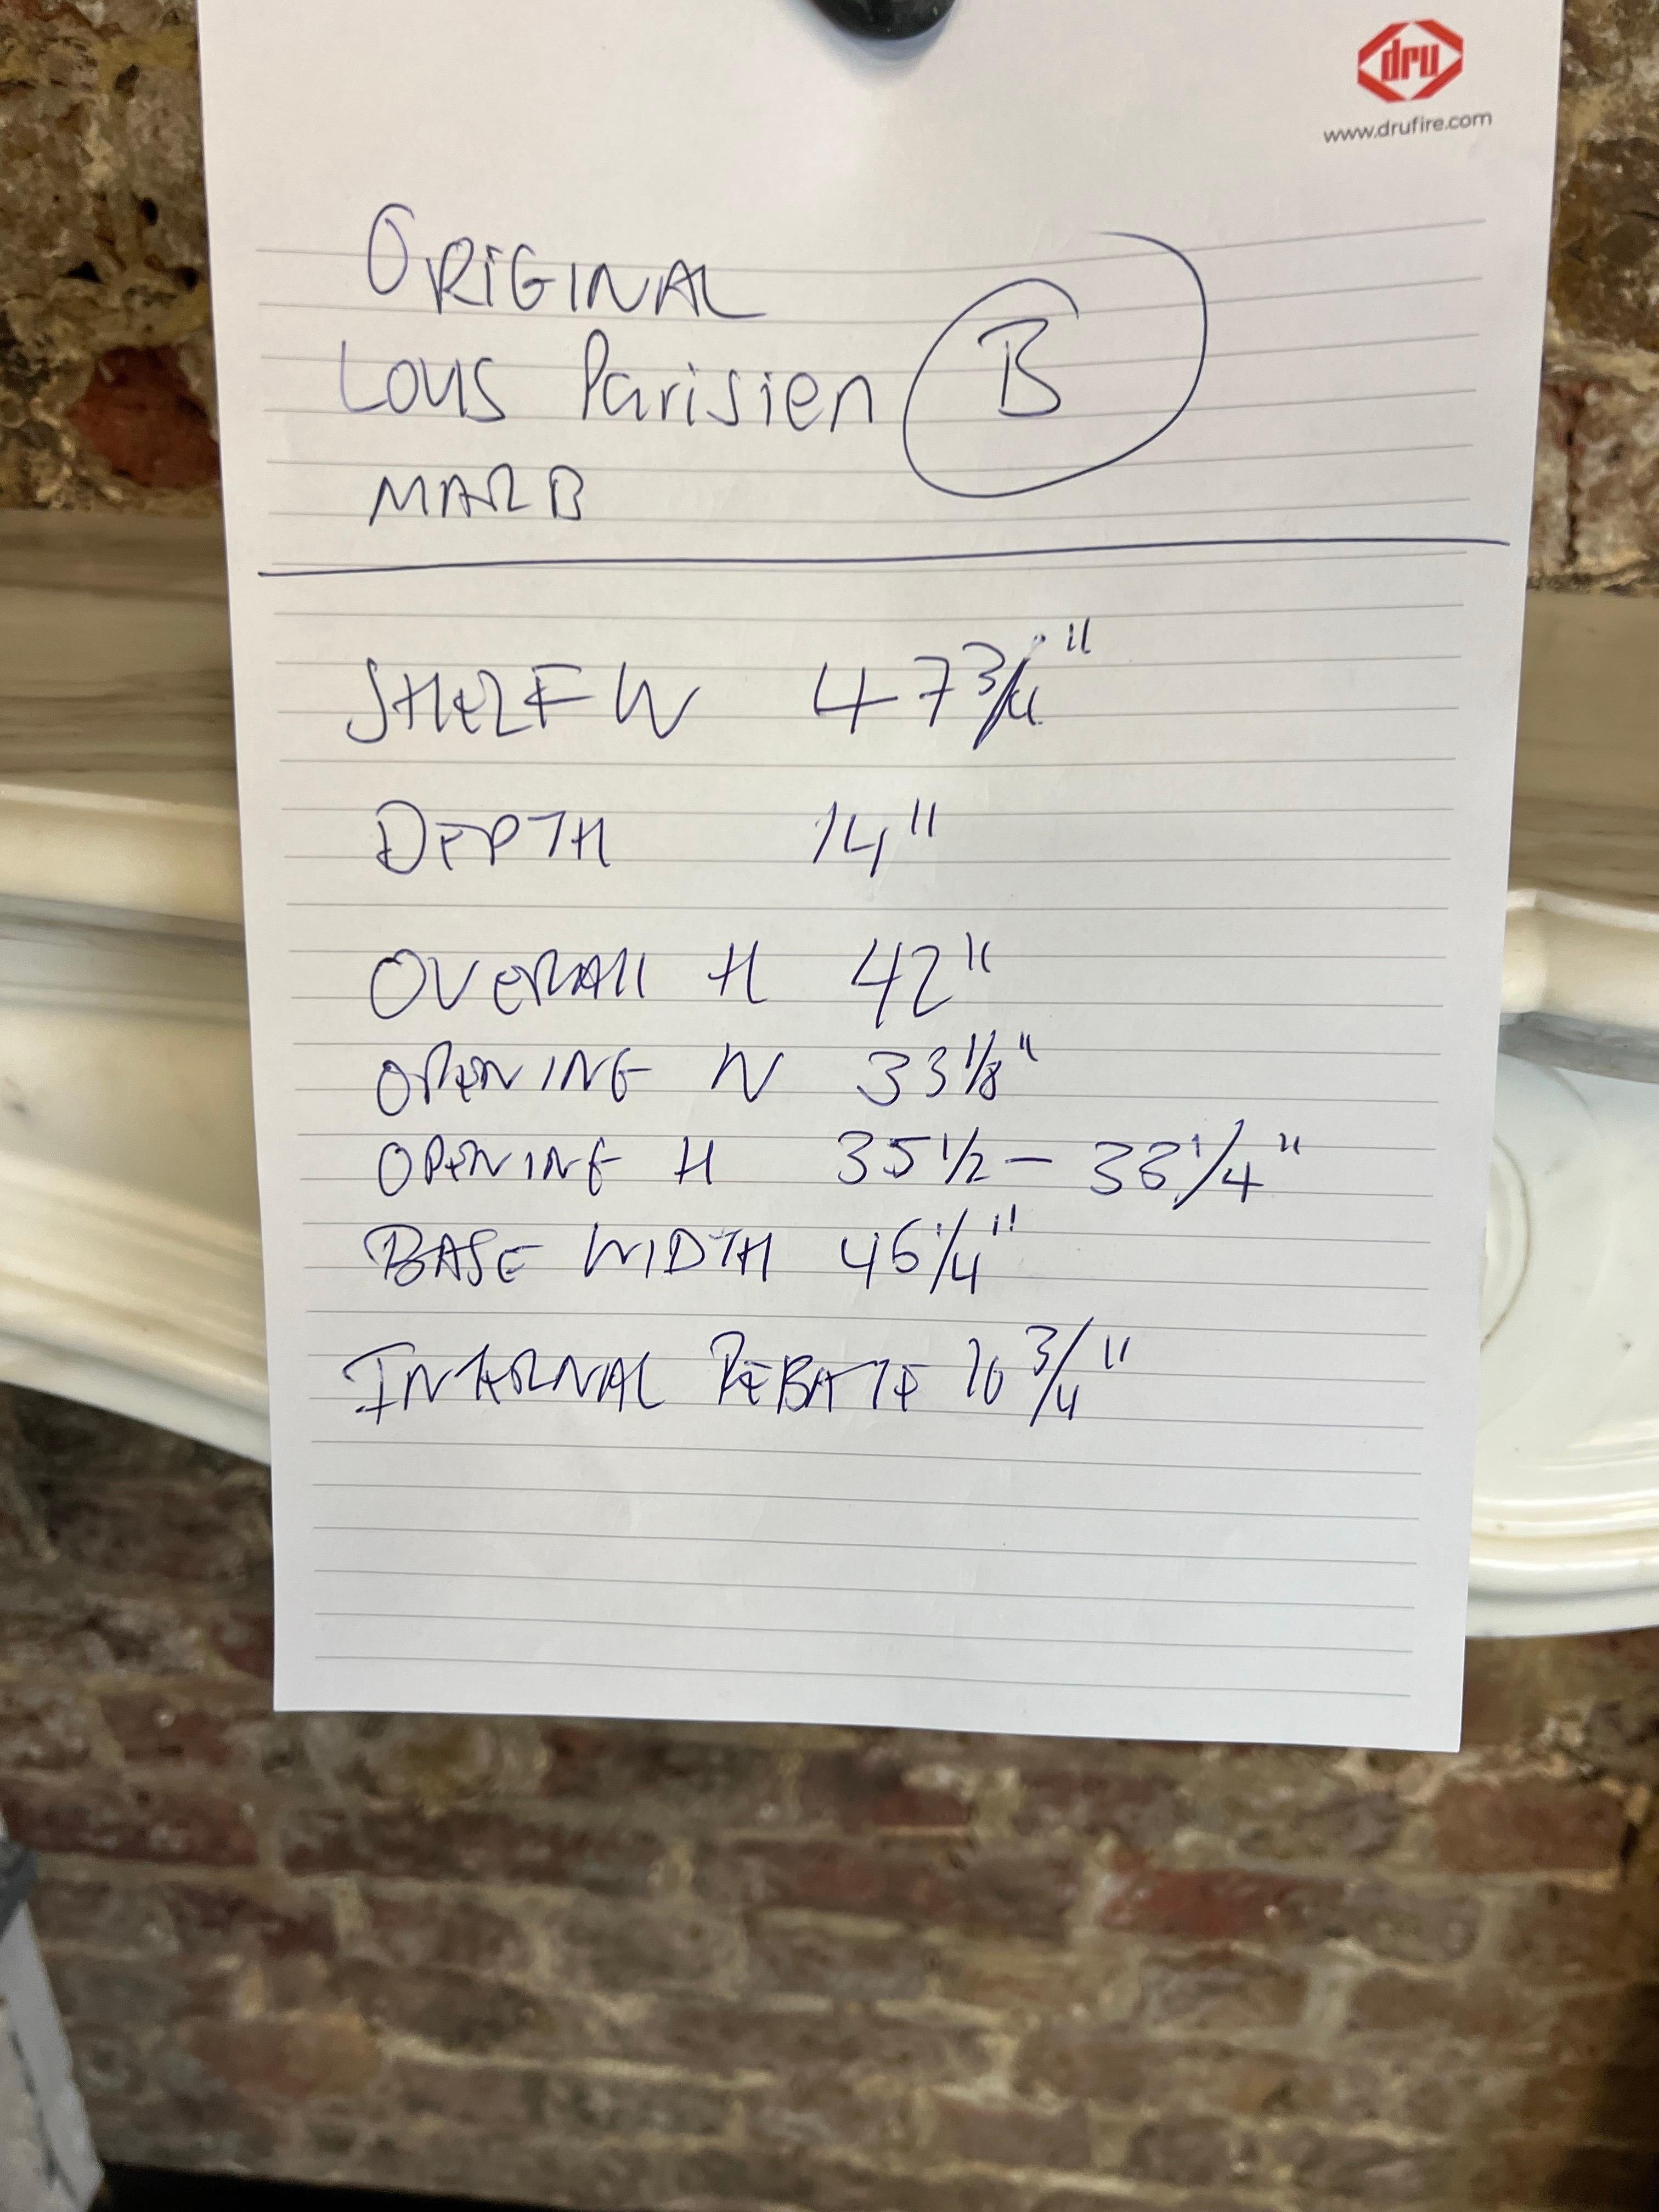 dru
www.drufire.com
ORIGINAL
LOUIS Parisien B
MARB
SHELF W 47 3/4"
DEPTH 14"
OVERALL H 42"
OPENING W 33 1/8"
OPENING H 35 1/2 - 33 1/4"
BASE WIDTH 46 1/4"
INTERNAL REBATE 10 3/4"